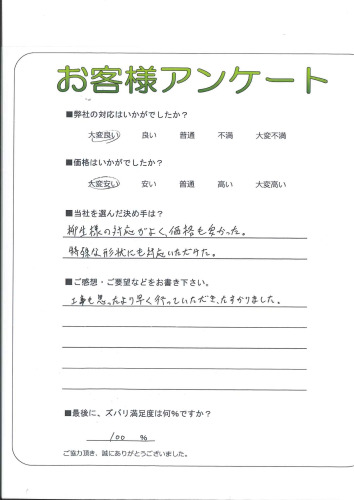 お客様アンケート
■弊社の対応はいかがでしたか？
大変良い 良い 普通 不満 大変不満
■価格はいかがでしたか？
大変安い 安い 普通 高い 大変高い
■当社を選んだ決め手は？
柳生様の対応がよく、価格も安かった。
特殊な形状にも対応いただけた。
■ご感想・ご要望などをお書き下さい。
工事も思ったより早く行っていただき、たすかりました。
■最後に、ズバリ満足度は何％ですか？
100 %
ご協力頂き、誠にありがとうございました。